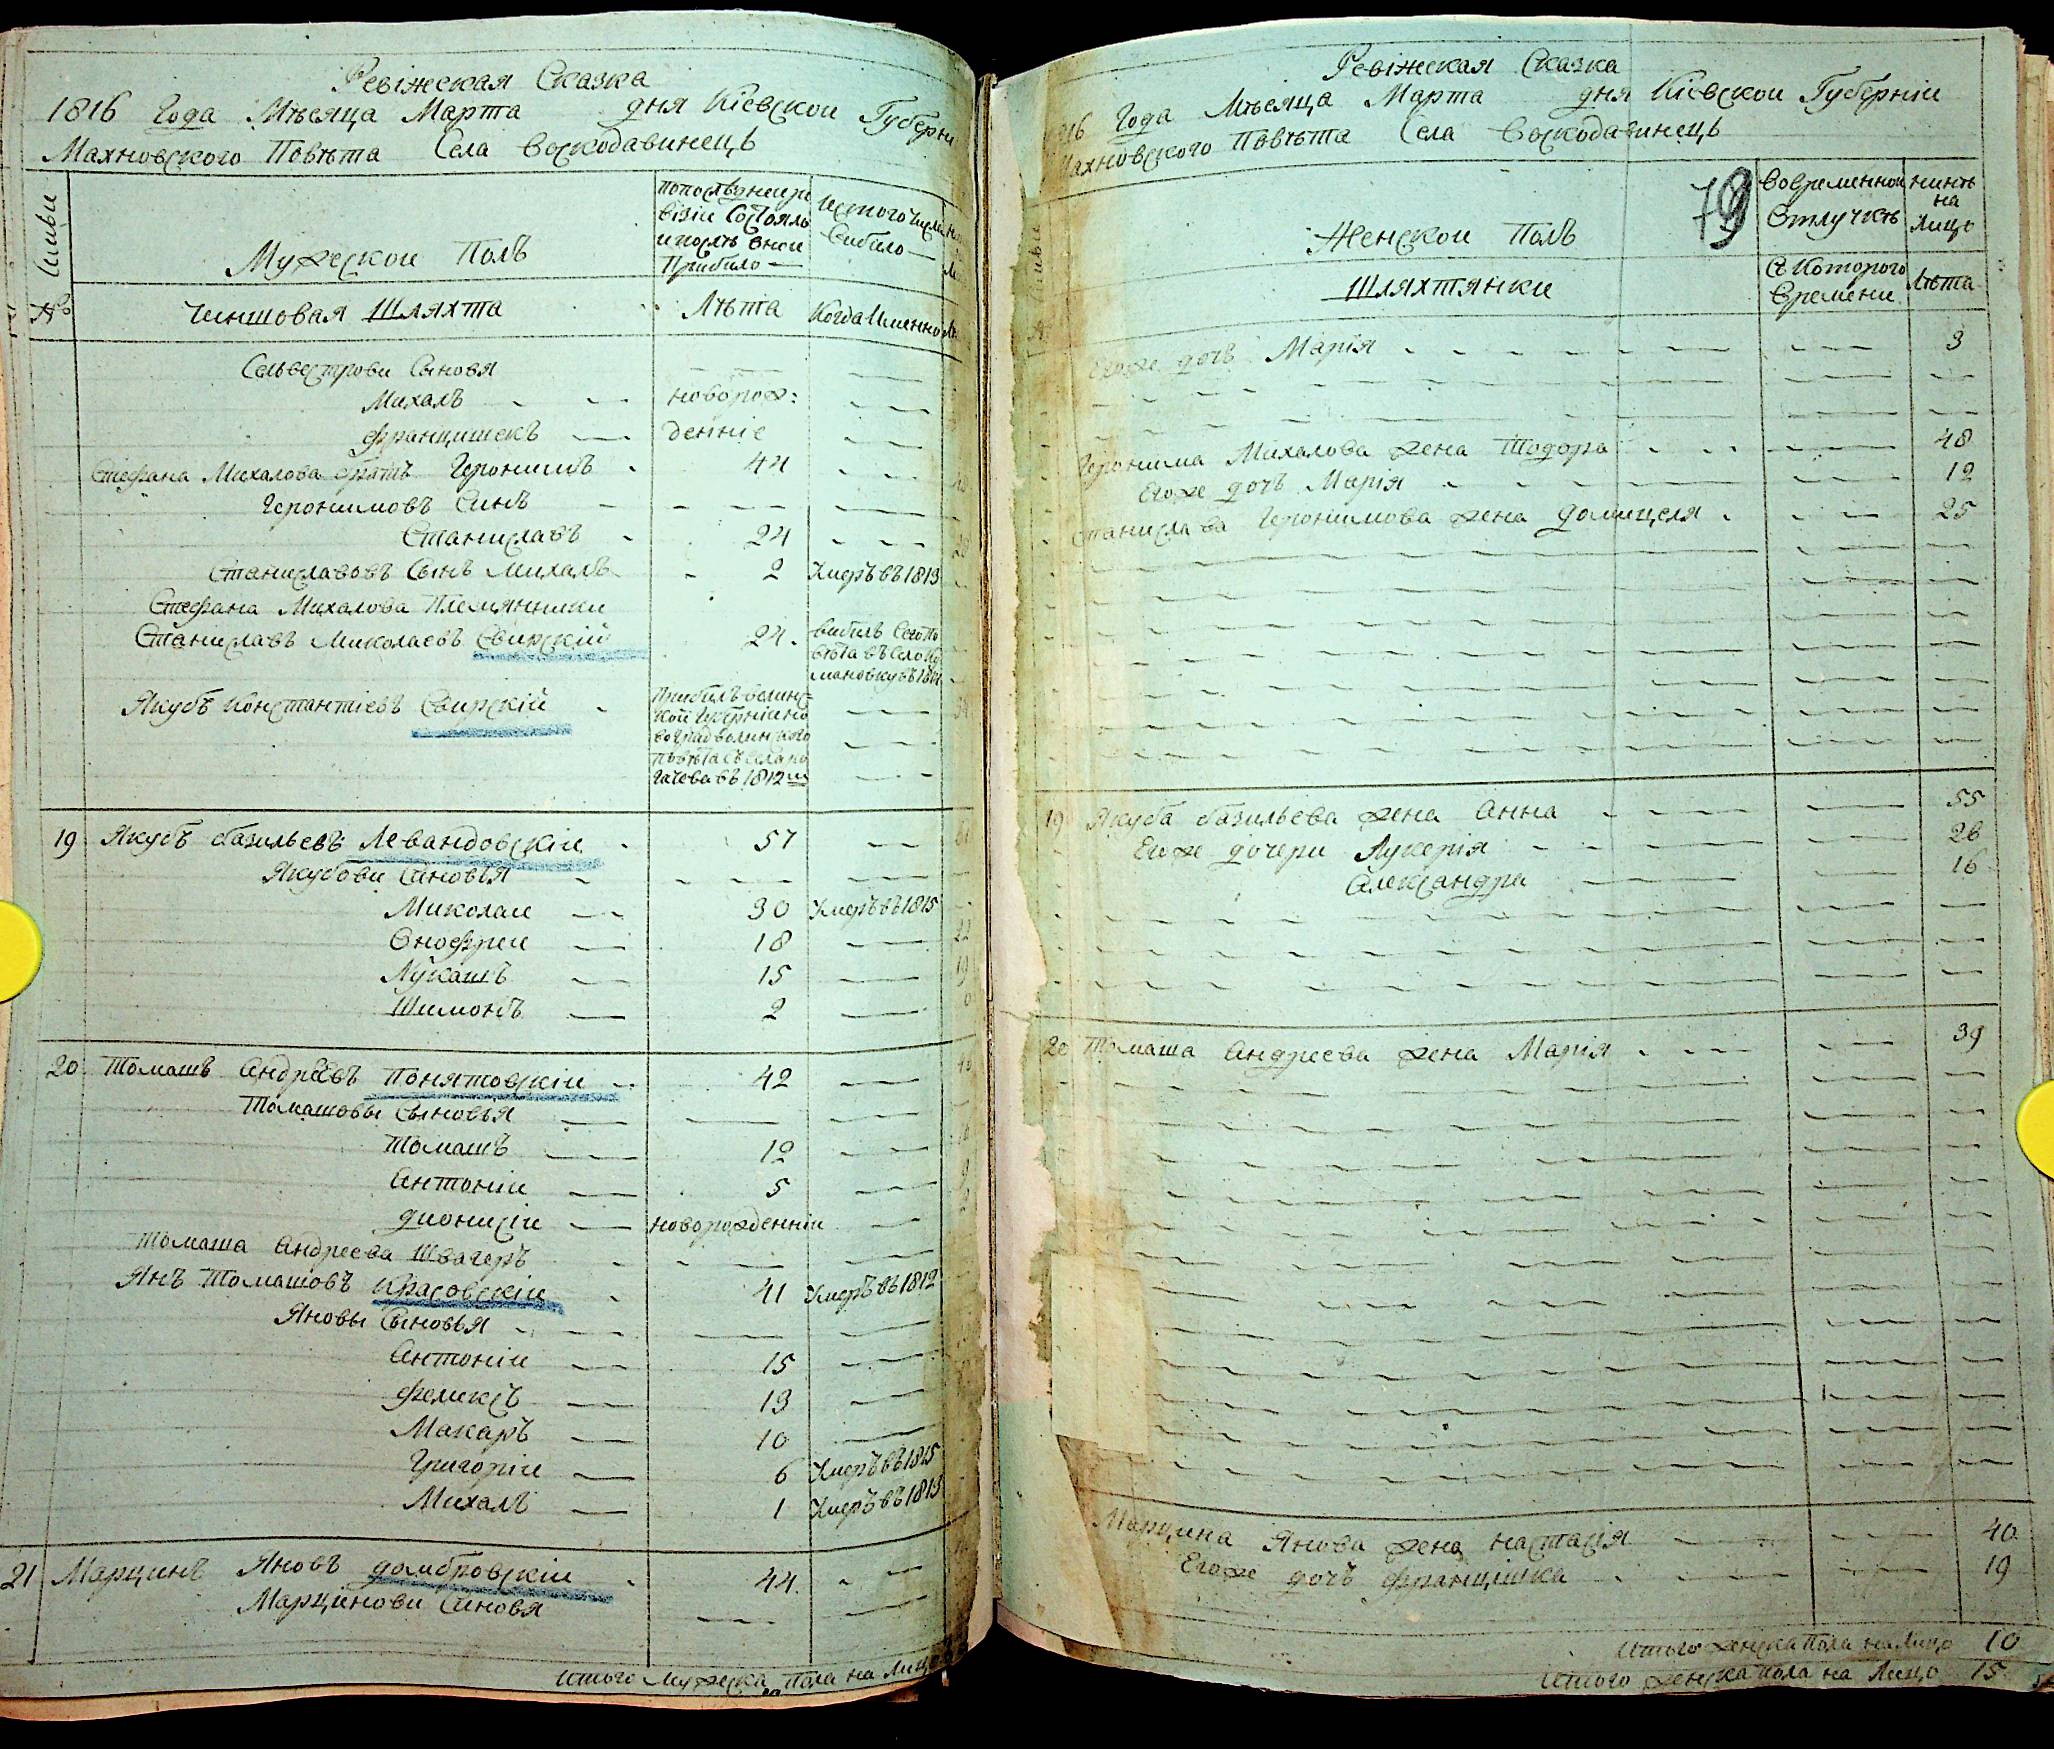 Ревіжская Сказка
1816 Года Мѣсяца Марта дня Кіевскои Губерні
Махновского Повѣта Села Воскодавинецъ
Мужескои Полъ
Лѣта
Чиншовая Шляхта
Когда Именно
№
Селвестрови Сыновя
Михалъ новорож:
Францишекъ деннiе
Стефана Михалова братъ Геронимъ 44
Геронимовъ Синъ
Станиславъ 24
Станиславовъ Сынъ Михалъ 2 Умеръ въ 1813
Стефана Михалова Племянники
Станиславъ Миколаевъ Свирскій 24.
Якубъ Константіевъ Свирскій
Прибилъ волинс-
кой Губерніи но
воградволинского
Повѣта съ Села Ро
гачева въ 1812м
19 Якубъ базильевъ Левандовскіи 57
Якубови Синовья
Миколаи 30 Умеръ въ 1815
Онофреи 18
Лукашъ 15
Шимонъ 2
20 Томашъ Андреевъ Понятовскіи 42
Томашовы Сыновья
Томашъ 12
Антоніи 5
дионисіи новорожденніи
Томаша Андреева Швагеръ
Янъ Томашовъ Красовскіи 41 Умеръ въ 1812
Яновы Сыновья
Антоніи 15
Феликсъ 13
Макаръ 10
Григоріи 6 Умеръ въ 1815
Михалъ 1 Умеръ въ 1813
21 Марцинъ Яновъ домбровскіи 44
Марцинови Синовя
Итого Мужеска пола на Лицо
Ревіжская Сказка
816 Года Мѣсяца Марта дня Кіевскои Губерніи
Махновского Повѣта Села Воскодавинецъ
79
Женскои Полъ
Вовременнои
Отлучкѣ
нинѣ
на
Лицо
Шляхтянки
Съ Которого
Времени
Лѣта
Егоже дочъ Марія 3
Геронима Михалова жена Тодора 48
Егоже дочъ Марія 12
Станислава Геронимова жена домицеля 25
19 Якуба базильева жена Анна 55
Егоже дочери Лукерія 26
Александра 16
20 Томаша Андреева жена Марія 39
Марцина Янова жена Настасія 40
Егоже дочъ Францишка 19
Итого женска Пола на Лицо 10
Итого женска пола на Лицо 15